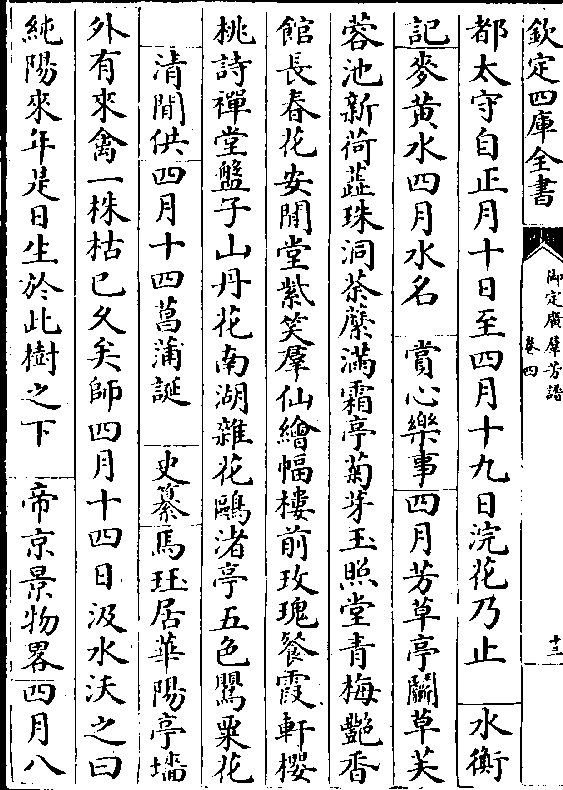 欽定四庫全書
御定廣羣芳譜
卷四
十三
都太守自正月十日至四月十九日浣花乃止 水衡
記麥黃水四月水名 賞心樂事四月芳草亭鬭草芙
蓉池新荷蘂珠洞荼䕷滿霜亭菊芽玉照堂青梅艷香
館長春花安閒堂紫笑羣仙繪幅樓前玫瑰餐霞軒櫻
桃詩禪堂盤子山丹花南湖雜花鷗渚亭五色罌粟花
清閒供四月十四菖蒲誕 史纂馬珏居華陽亭墻
外有來禽一株枯已久矣師四月十四日汲水沃之曰
純陽來年是日生於此樹之下 帝京景物畧四月八